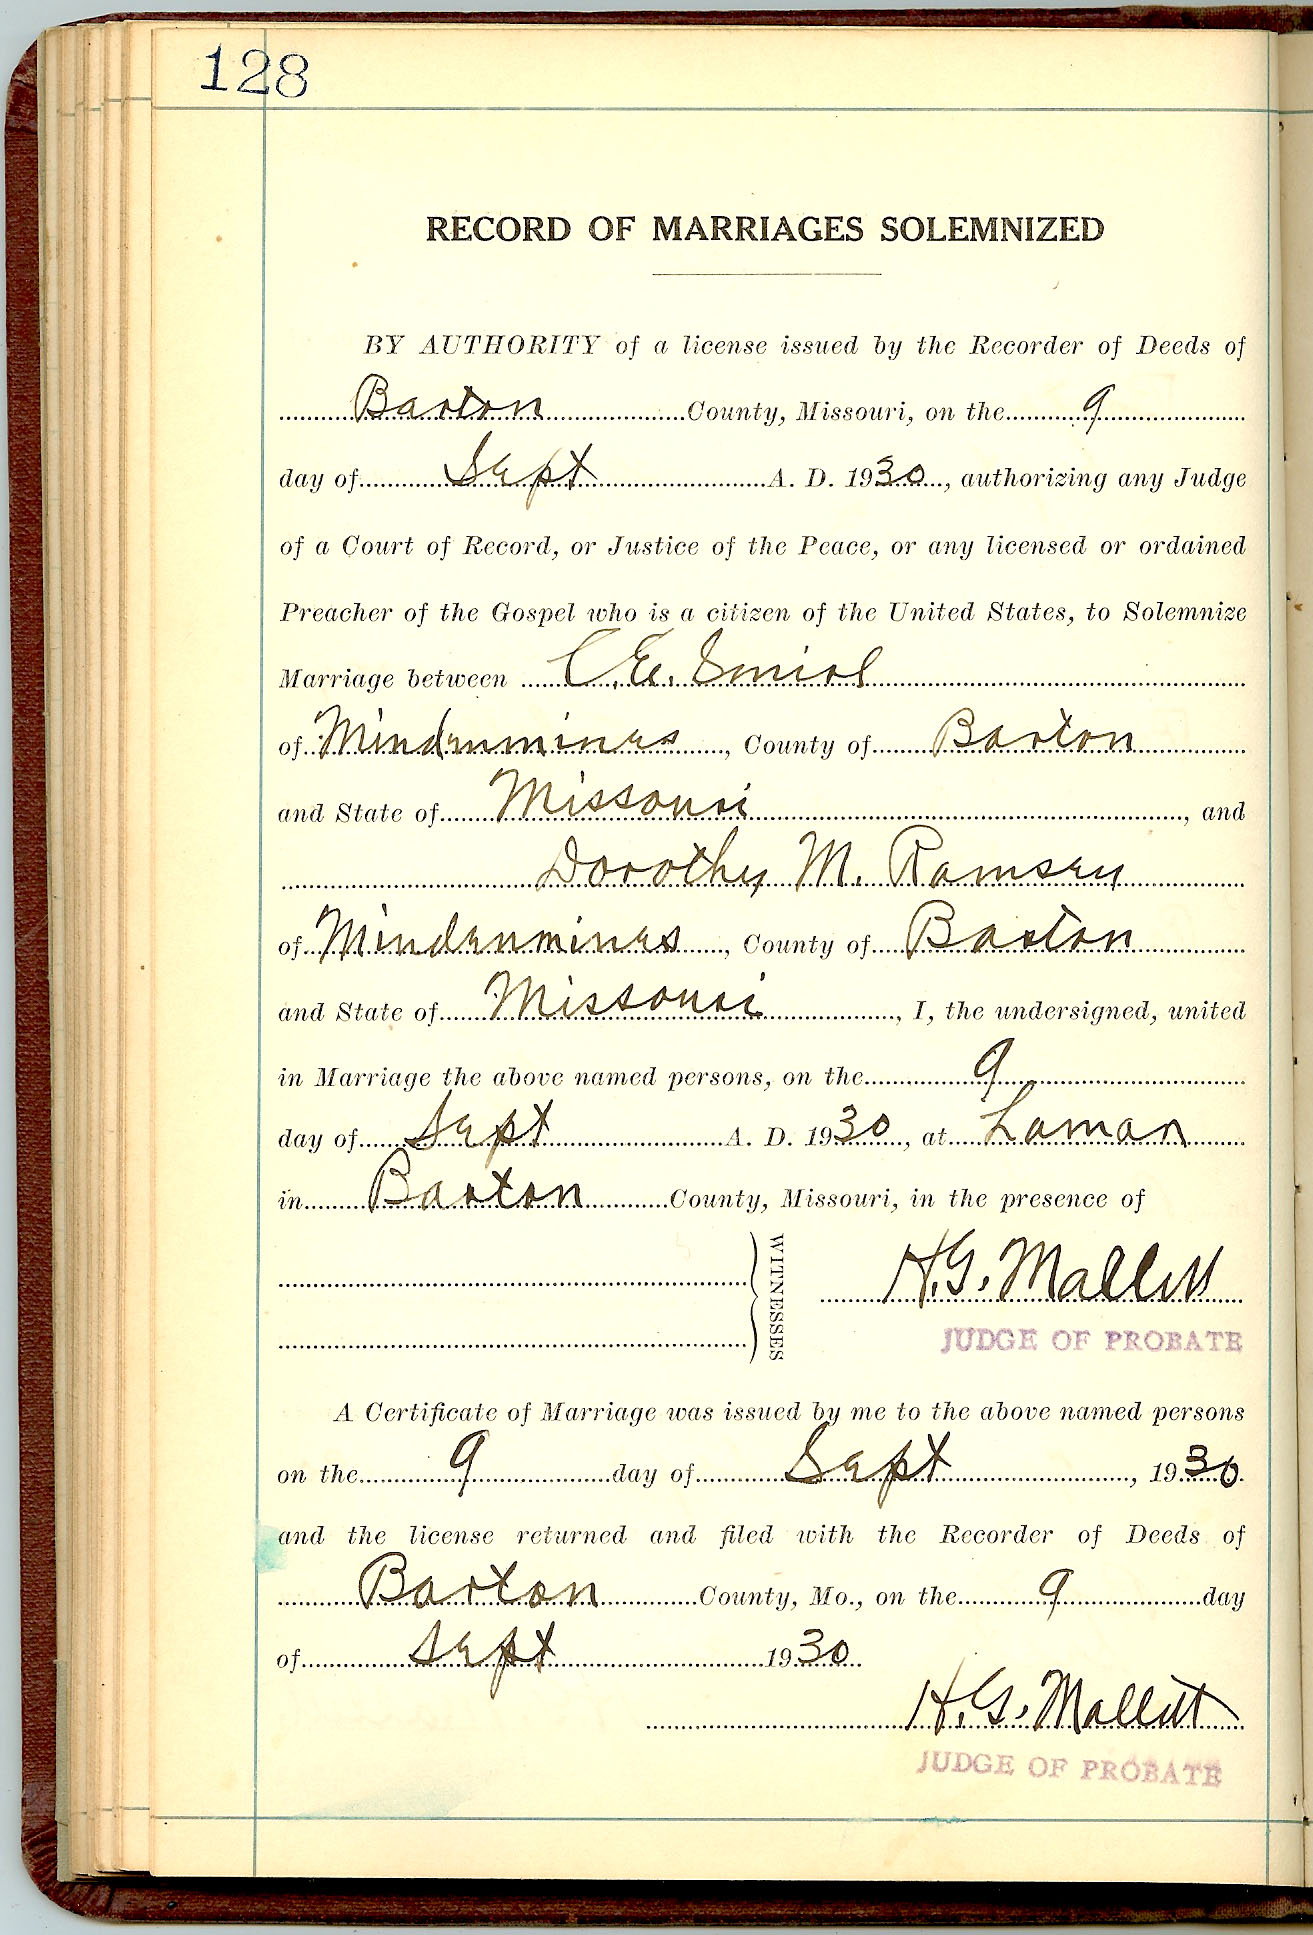 128
RECORD OF MARRIAGES SOLEMNIZED
BY AUTHORITY of a license issued by the Recorder of Deeds of
Barton County, Missouri, on the 9
day of Sept A. D. 1930, authorizing any Judge
of a Court of Record, or Justice of the Peace, or any licensed or ordained
Preacher of the Gospel who is a citizen of the United States, to Solemnize
Marriage between C. E.
of Mindenmines, County of Barton
and State of Missouri, and
Dorothy M. Ramsey
of Mindenmines, County of Barton
and State of Missouri, I, the undersigned, united
in Marriage the above named persons, on the 9
day of Sept A. D. 1930, at Lamar
in Barton County, Missouri, in the presence of
WITNESSES
H. G. Mallett
JUDGE OF PROBATE
A Certificate of Marriage was issued by me to the above named persons
on the 9 day of Sept, 1930
and the license returned and filed with the Recorder of Deeds of
Barton County, Mo., on the 9 day
of Sept 1930
H. G. Mallett
JUDGE OF PROBATE